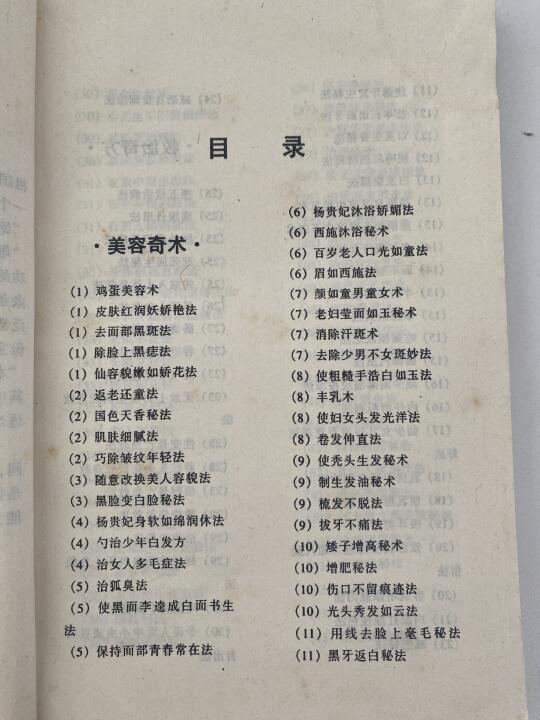 目 录
·美容奇术·
(1) 鸡蛋美容术
(1) 皮肤红润妖娇艳法
(1) 去面部黑斑法
(1) 除脸上黑痣法
(1) 仙容貌嫩如娇花法
(2) 返老还童法
(2) 国色天香秘法
(2) 肌肤细腻法
(2) 巧除皱纹年轻法
(3) 随意改换美人容貌法
(3) 黑脸变白脸秘法
(4) 杨贵妃身软如绵润休法
(4) 勺治少年白发方
(4) 治女人多毛症法
(5) 治狐臭法
(5) 使黑面李逵成白面书生
法
(5) 保持面部青春常在法
(6) 杨贵妃沐浴娇媚法
(6) 西施沐浴秘术
(6) 百岁老人口光如童法
(6) 眉如西施法
(7) 颜如童男童女术
(7) 老妇莹面如玉秘术
(7) 消除汗斑术
(7) 去除少男不女斑妙法
(8) 使粗糙手浩白如玉法
(8) 丰乳木
(8) 使妇女头发光洋法
(8) 卷发伸直法
(9) 使秃头生发秘术
(9) 制生发油秘术
(9) 梳发不脱法
(9) 拔牙不痛法
(10) 矮子增高秘术
(10) 增肥秘法
(10) 伤口不留痕迹法
(10) 光头秀发如云法
(11) 用线去脸上毫毛秘法
(11) 黑牙返白秘法